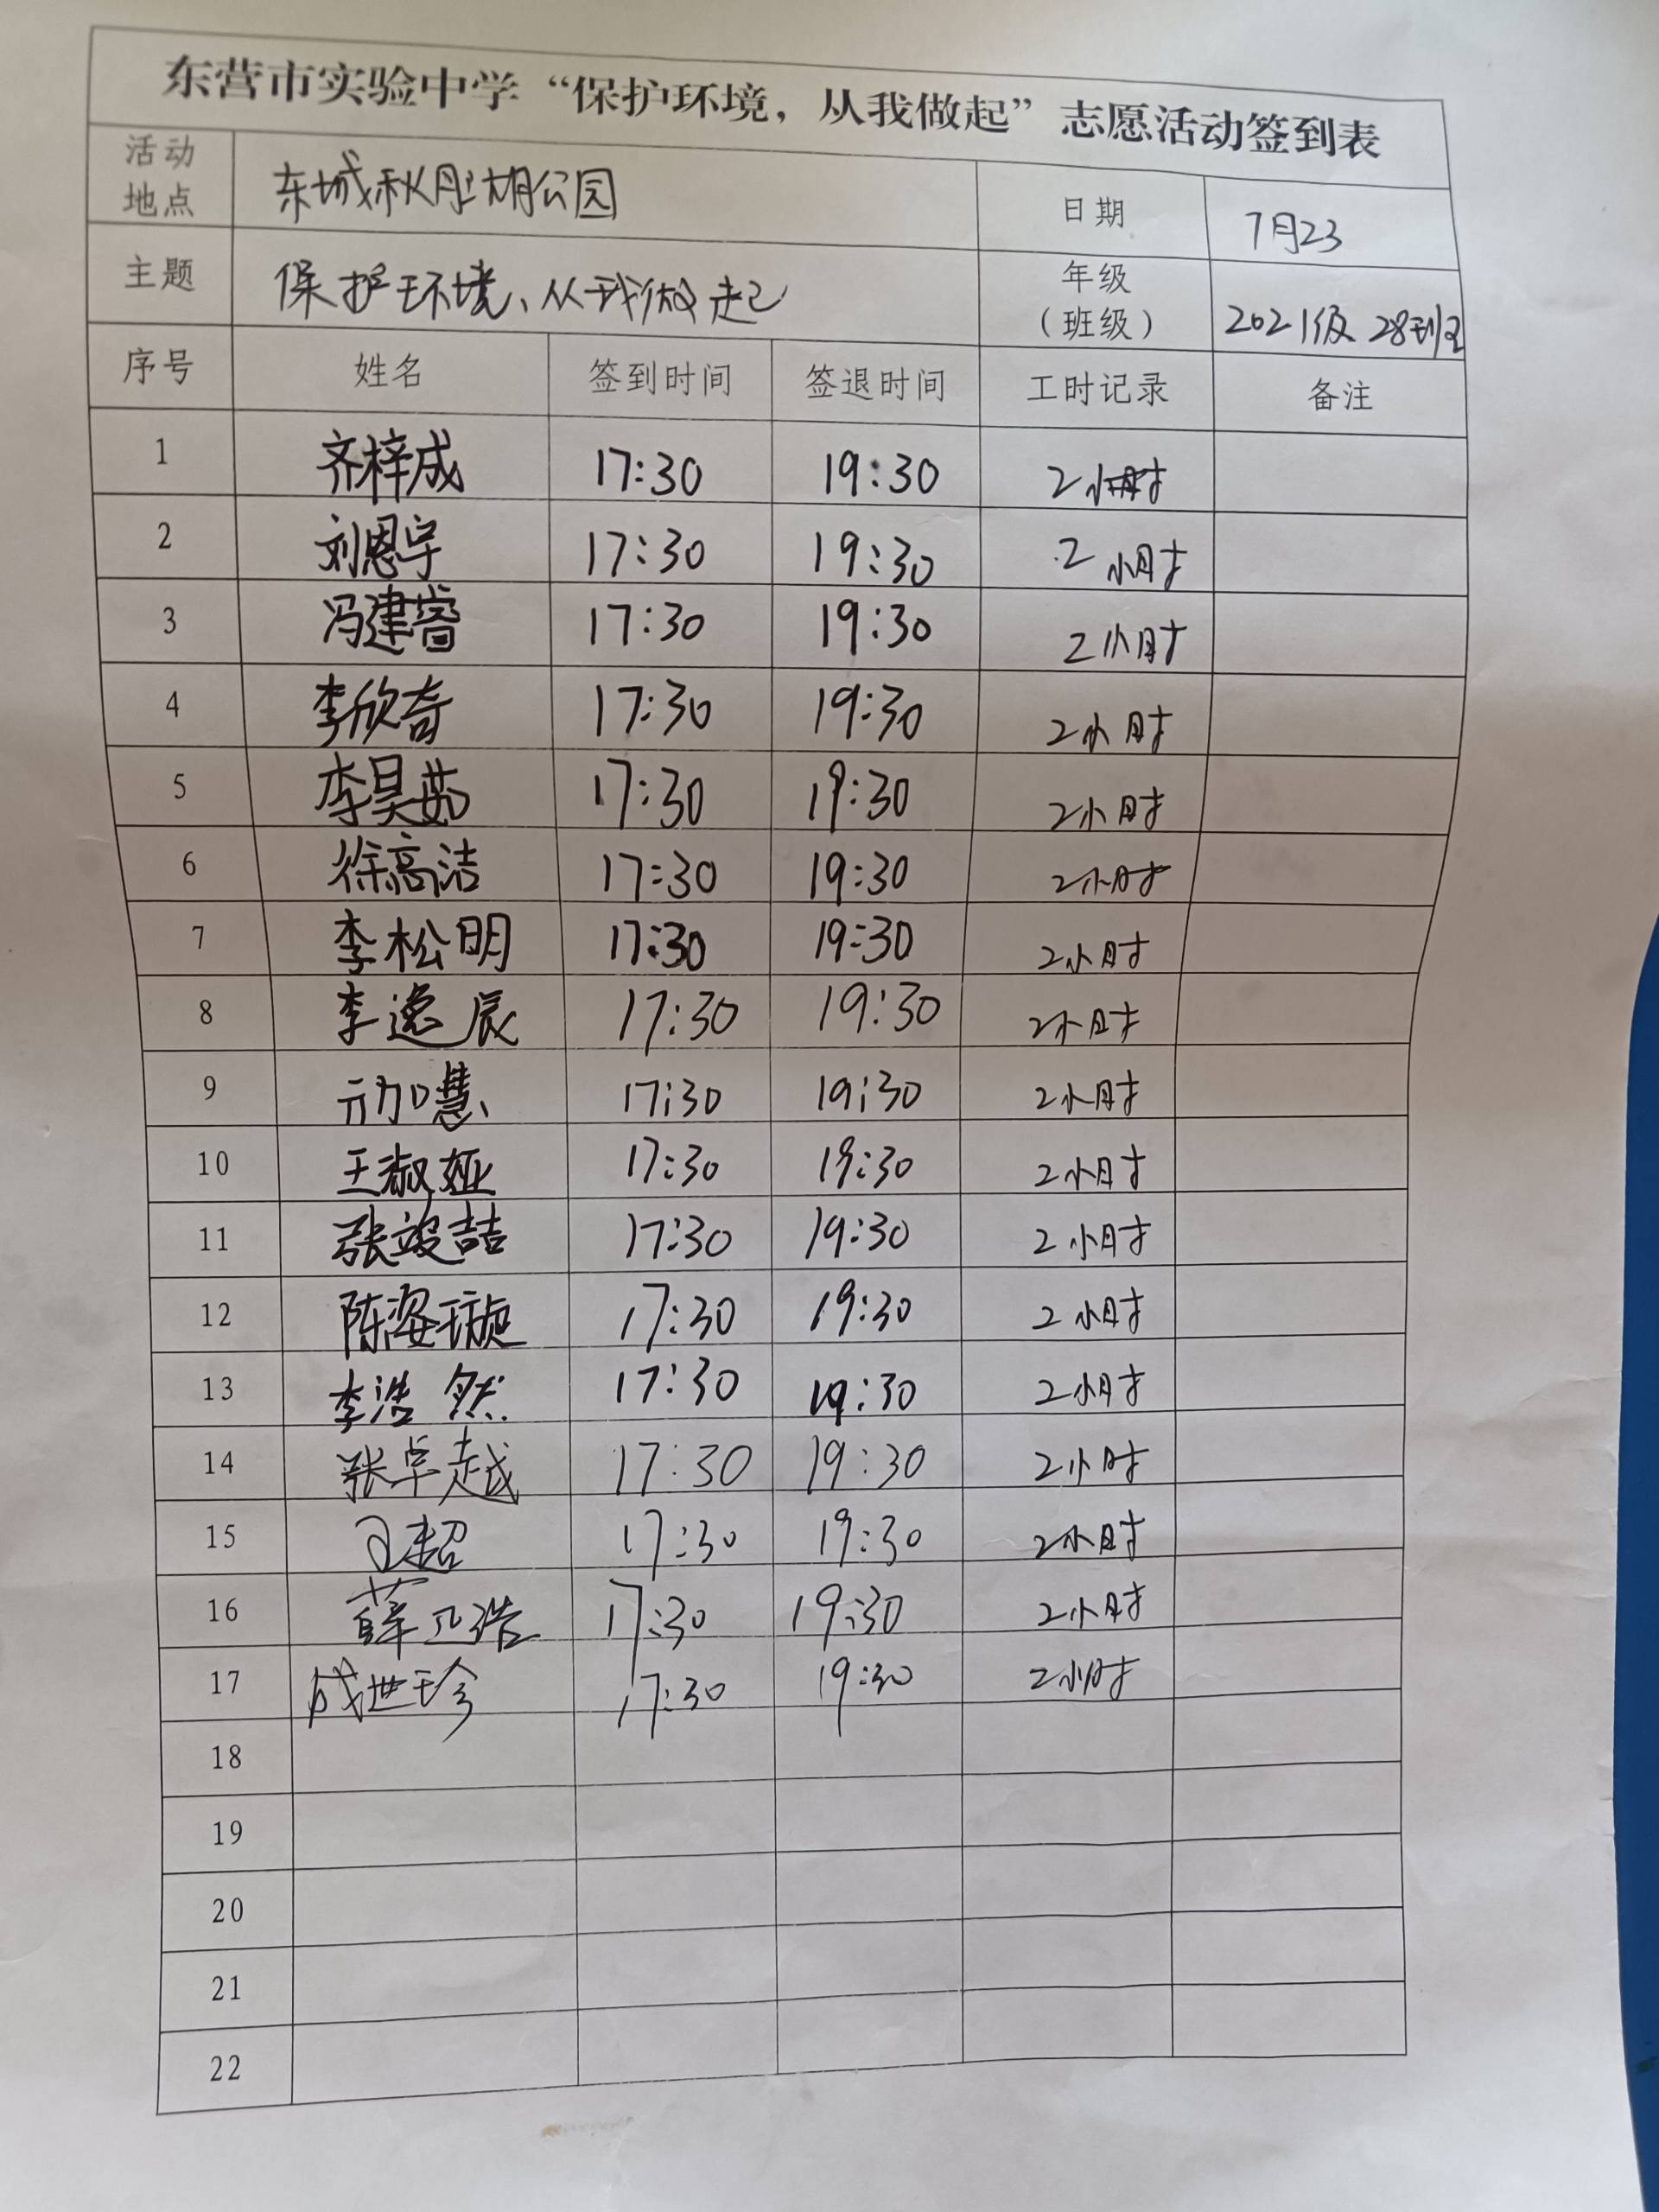 东营市实验中学“保护环境，从我做起”志愿活动签到表
活动地点 东城秋月湖公园 日期 7月23
主题 保护环境、从我做起 年级（班级） 2021级 28班
序号 姓名 签到时间 签退时间 工时记录 备注
1 齐梓成 17:30 19:30 2小时
2 刘恩宇 17:30 19:30 2小时
3 冯建睿 17:30 19:30 2小时
4 李欣奇 17:30 19:30 2小时
5 李昊茹 17:30 19:30 2小时
6 徐高洁 17:30 19:30 2小时
7 李松明 17:30 19:30 2小时
8 李逸辰 17:30 19:30 2小时
9 亓加慧 17:30 19:30 2小时
10 王淑娅 17:30 19:30 2小时
11 张竣喆 17:30 19:30 2小时
12 陈姿璇 17:30 19:30 2小时
13 李浩然 17:30 19:30 2小时
14 张卓越 17:30 19:30 2小时
15 超 17:30 19:30 2小时
16 薛 浩 17:30 19:30 2小时
17 成世珍 17:30 19:30 2小时
18
19
20
21
22